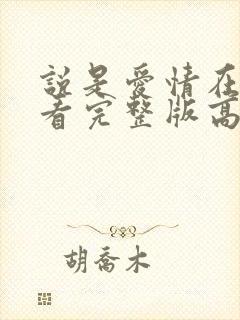 說是愛情在
看完整版高
胡喬木